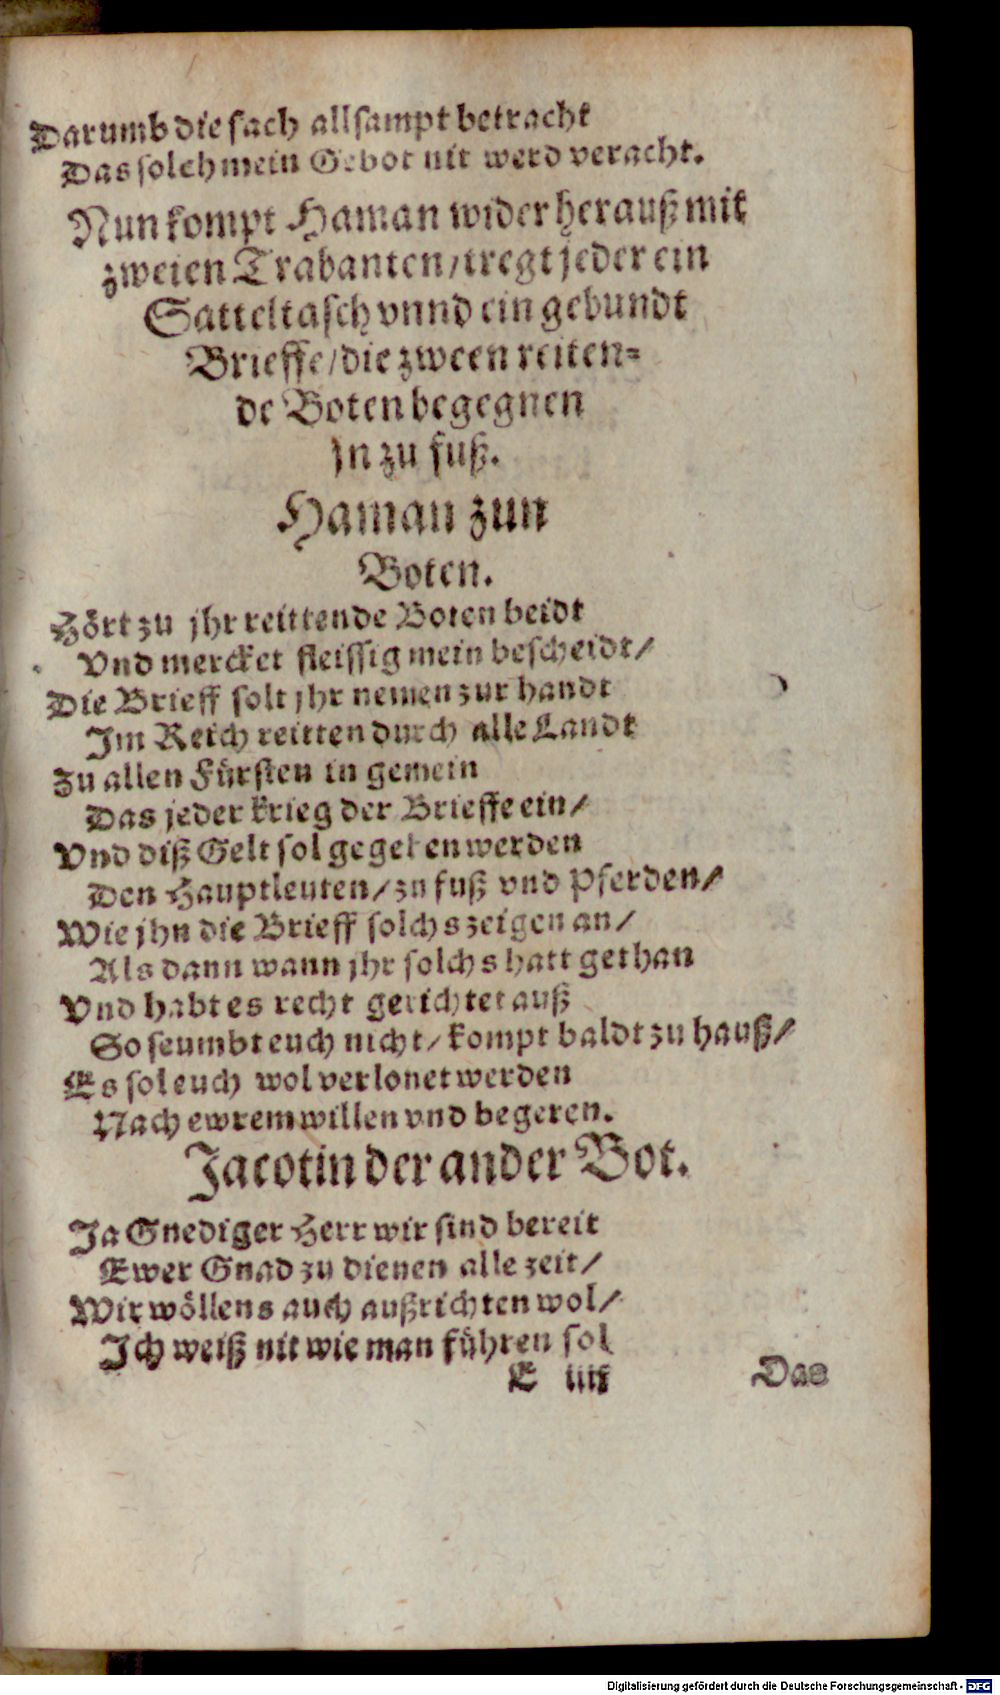 Darumb die sach allsampt betracht
Das solch mein Gebot nit werd veracht.
Nun kompt Haman wider herauß mit
zweien Trabanten / tregt jeder ein
Satteltasch vnnd ein gebundt
Brieffe / die zween reiten=
de Boten begegnen
jn zu fuß.
Haman zun
Boten.
Hört zu jhr reittende Boten beidt
Vnd mercket fleissig mein bescheidt /
Die Brieff solt jhr nemen zur handt
Im Reich reitten durch alle Landt
Zu allen Fürsten in gemein
Das jeder krieg der Brieffe ein /
Vnd diß Gelt sol gegeben werden
Den Hauptleuten / zu fuß vnd Pferden /
Wie jhn die Brieff solchs zeigen an /
Als dann wann jhr solchs hatt gethan
Vnd habt es recht gerichtet auß
So seumbt euch nicht / kompt baldt zu hauß /
Es sol euch wol verlonet werden
Nach ewrem willen vnd begeren.
Jacotin der ander Bot.
Ja Gnediger Herr wir sind bereit
Ewer Gnad zu dienen alle zeit /
Wir wöllens auch außrichten wol /
Ich weiß nit wie man führen sol
E iiij Das
Digitalisierung gefördert durch die Deutsche Forschungsgemeinschaft - DFG